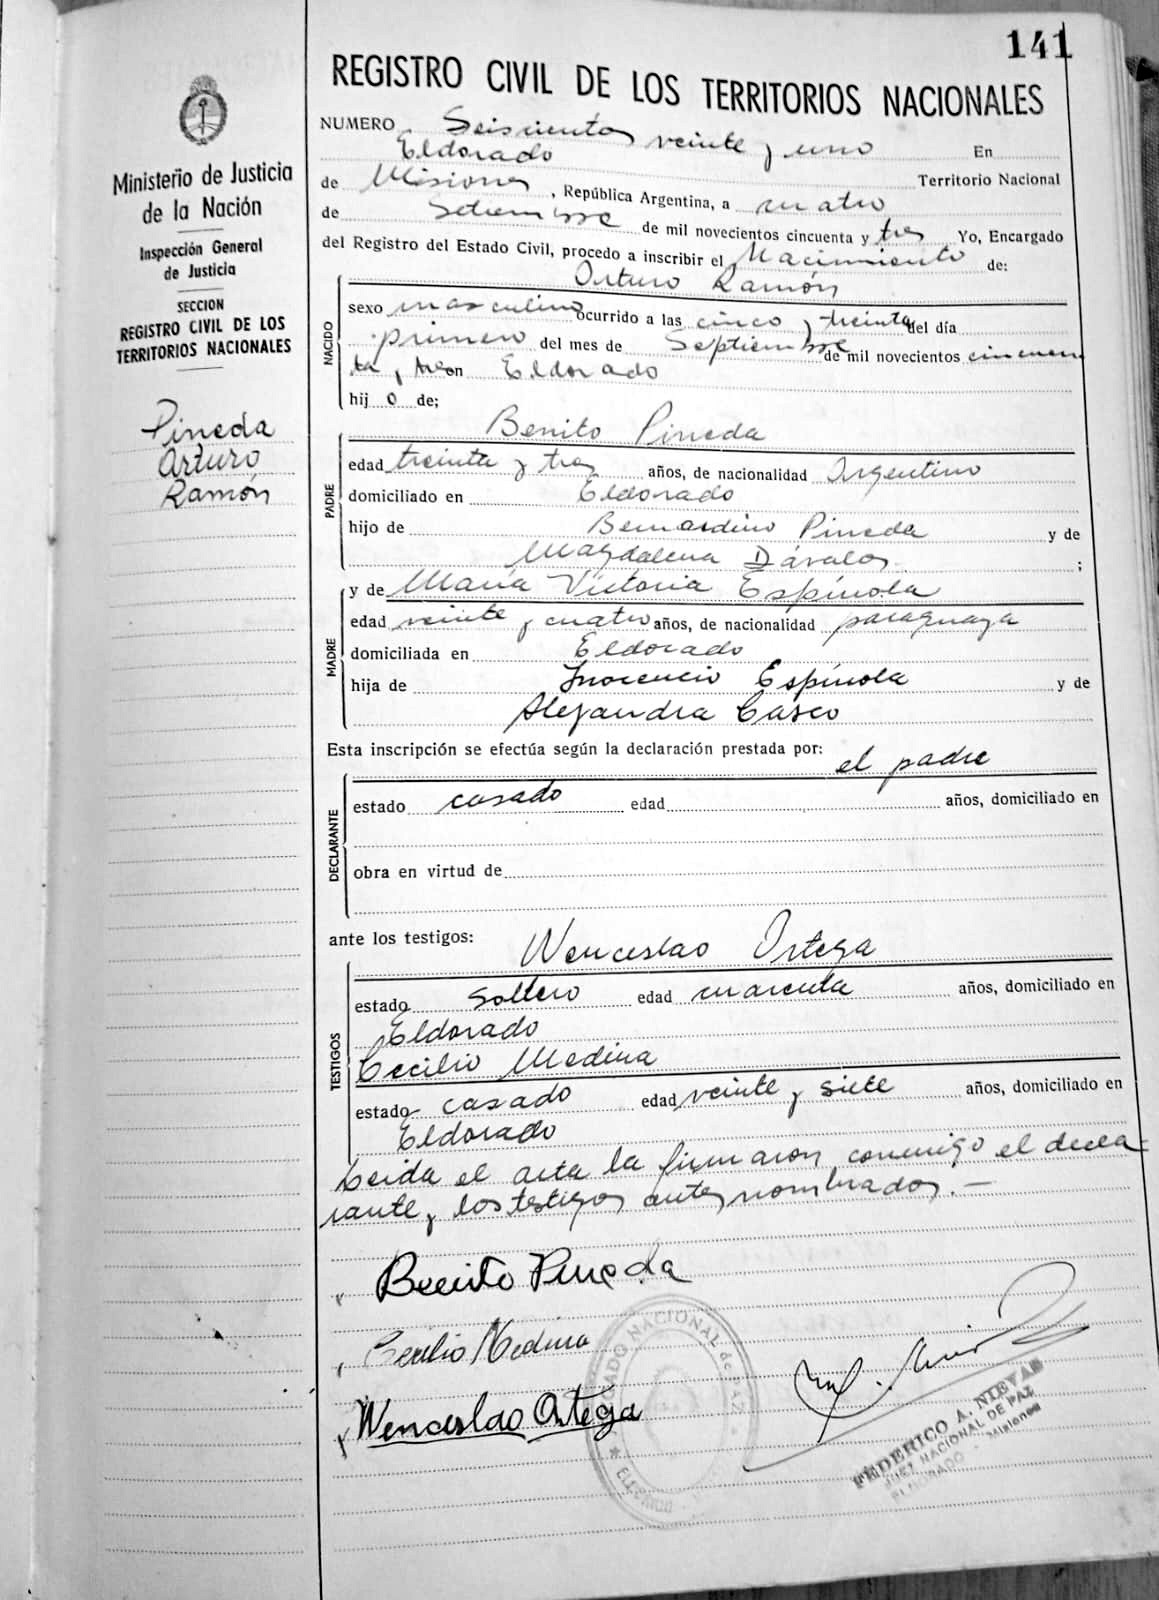 141
REGISTRO CIVIL DE LOS TERRITORIOS NACIONALES
Ministerio de Justicia
de la Nación
Inspección General
de Justicia
SECCION
REGISTRO CIVIL DE LOS
TERRITORIOS NACIONALES
Pineda
Arturo
Ramón
NUMERO Seiscientos veinte y uno En
Eldorado Territorio Nacional
de Misiones, República Argentina, a cuatro
de Setiembre de mil novecientos cincuenta y tres Yo, Encargado
del Registro del Estado Civil, procedo a inscribir el Nacimiento de:
Arturo Ramón
NACIDO
sexo masculino ocurrido a las cinco y treinta del día
primero del mes de Septiembre de mil novecientos cincuen
ta y tres en Eldorado
hij o de;
Benito Pineda
PADRE
edad treinta y tres años, de nacionalidad Argentino
domiciliado en Eldorado
hijo de Bernardino Pineda y de
Magdalena Dávalos ;
y de María Victoria Espínola
MADRE
edad veinte y cuatro años, de nacionalidad paraguaya
domiciliada en Eldorado
hija de Inocencio Espínola y de
Alejandra Casco
Esta inscripción se efectúa según la declaración prestada por:
el padre
DECLARANTE
estado casado edad años, domiciliado en
obra en virtud de
ante los testigos: Wenceslao Ortega
TESTIGOS
estado soltero edad cuarenta años, domiciliado en
Eldorado
Cecilio Medina
estado casado edad veinte y siete años, domiciliado en
Eldorado
Leida el acta la firmaron conmigo el decla
rante y los testigos antes nombrados.—
Benito Pineda
Cecilio Medina
Wenceslao Ortega
JUZGADO NACIONAL de PAZ
ELDORADO
FEDERICO A. NIEVAS
JUEZ NACIONAL DE PAZ
ELDORADO - Misiones